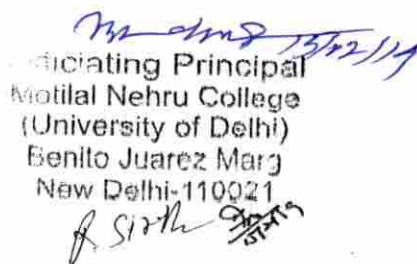 13/02/19
iciating Principal
Motilal Nehru College
(University of Delhi)
Benito Juarez Marg
New Delhi-110021